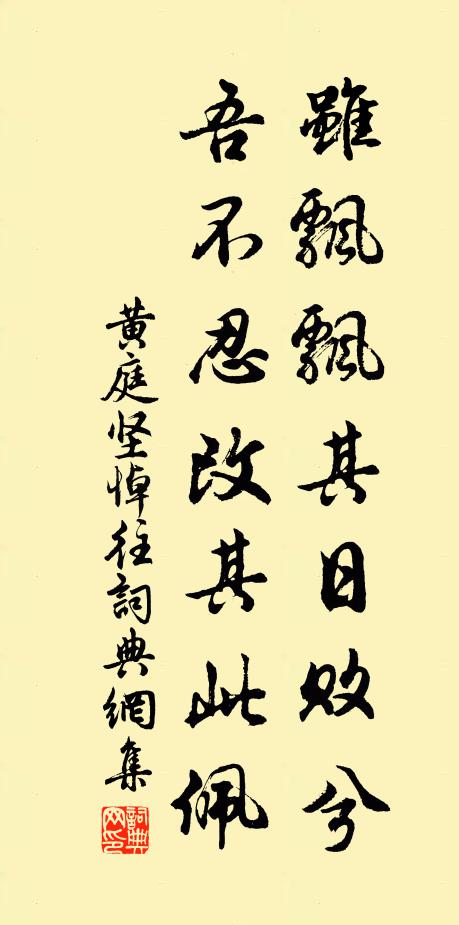 雖飄飄其日敗兮
吾不忍改其此佩
黄庭坚悼往詞典網集
詞典网印